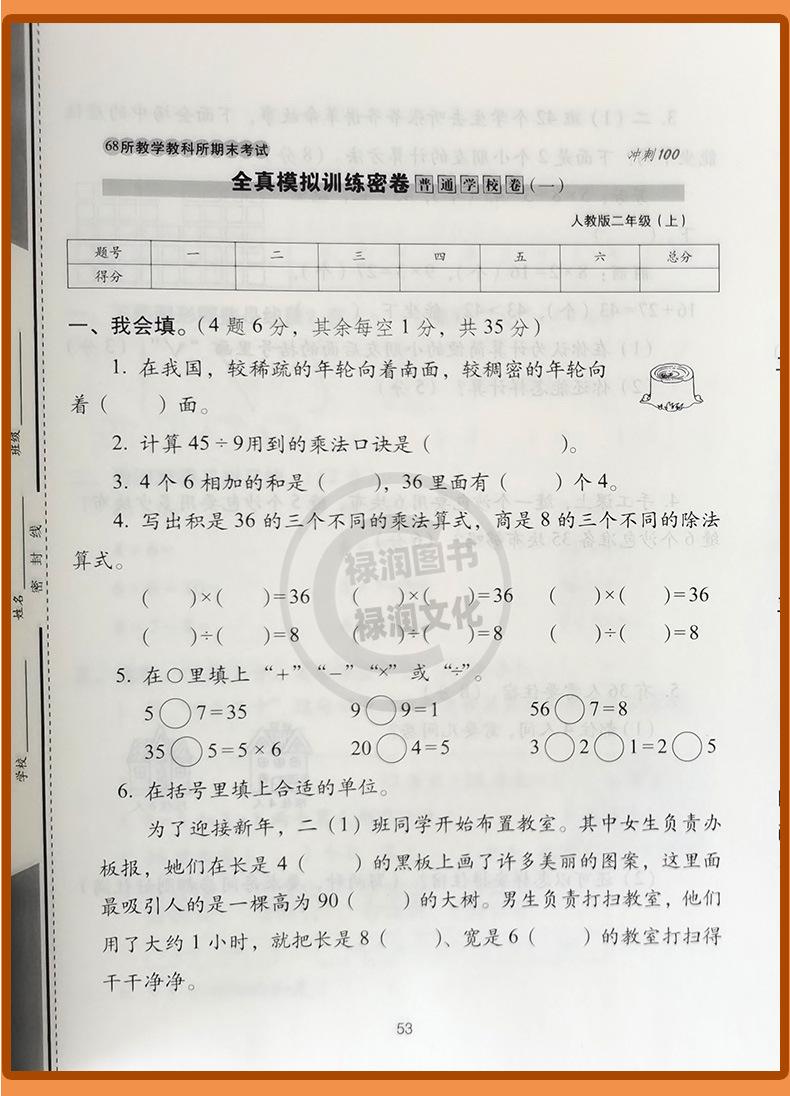 68所教学教科所期末考试
冲刺100
全真模拟训练密卷 普通学校卷(一)
人教版二年级(上)
题号 一 二 三 四 五 六 总分
得分
一、我会填。(4题6分,其余每空1分,共35分)
1. 在我国,较稀疏的年轮向着南面,较稠密的年轮向
着( )面。
2. 计算45÷9用到的乘法口诀是( )。
3. 4个6相加的和是( ),36里面有( )个4。
4. 写出积是36的三个不同的乘法算式,商是8的三个不同的除法
算式。
( )×( )=36 ( )×( )=36 ( )×( )=36
( )÷( )=8 ( )÷( )=8 ( )÷( )=8
5. 在○里填上“+”“-”“×”或“÷”。
5○7=35 9○9=1 56○7=8
35○5=5×6 20○4=5 3○2○1=2○5
6. 在括号里填上合适的单位。
为了迎接新年,二(1)班同学开始布置教室。其中女生负责办
板报,她们在长是4( )的黑板上画了许多美丽的图案,这里面
最吸引人的是一棵高为90( )的大树。男生负责打扫教室,他们
用了大约1小时,就把长是8( )、宽是6( )的教室打扫得
干干净净。
53
班级
姓名
学校
密封线
禄润图书
禄润文化